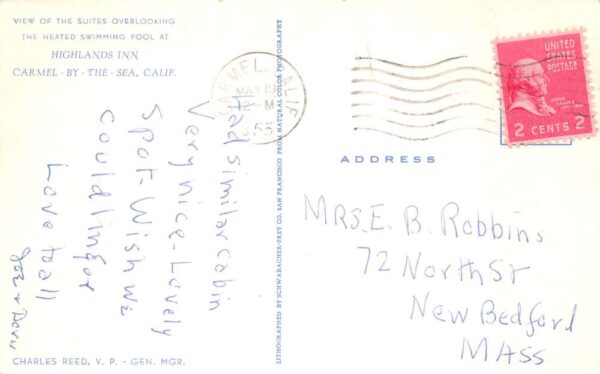 VIEW OF THE SUITES OVERLOOKING
THE HEATED SWIMMING POOL AT
HIGHLANDS INN
CARMEL - BY - THE - SEA, CALIF.
Had similar cabin
Very nice - Lovely
Spot - Wish we
could linger
Love to all
CHARLES REED, V. P. - GEN. MGR.
LITHOGRAPHED BY SCHWABACHER-FREY CO. SAN FRANCISCO FROM NATURAL COLOR PHOTOGRAPHY
CARMEL, CALIF.
MAY
M
55
UNITED
STATES
POSTAGE
JOHN
ADAMS
2 CENTS 2
ADDRESS
MRS. E. B. Robbins
72 North St
New Bedford
MASS